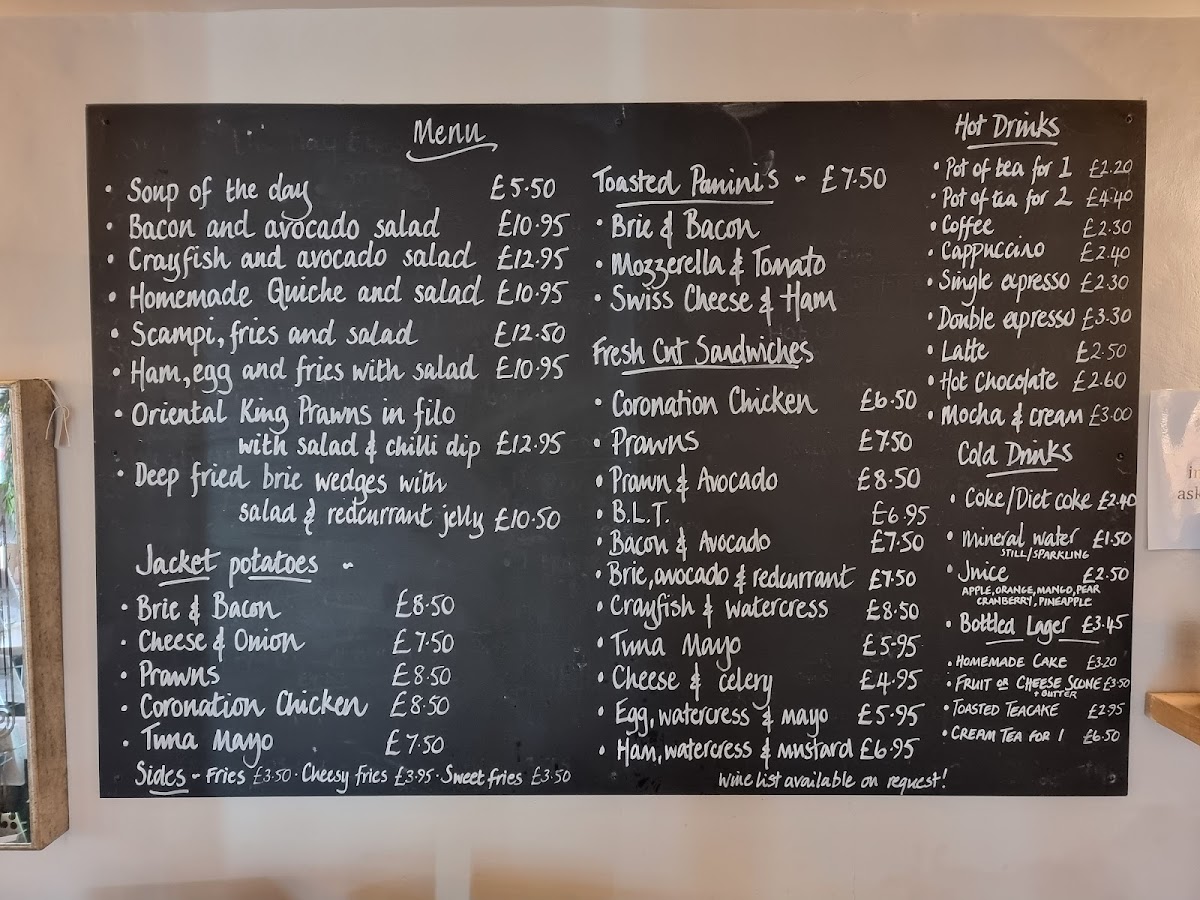 Menu
• Soup of the day £5.50
• Bacon and avocado salad £10.95
• Crayfish and avocado salad £12.95
• Homemade Quiche and salad £10.95
• Scampi, fries and salad £12.50
• Ham, egg and fries with salad £10.95
• Oriental King Prawns in filo
with salad & chilli dip £12.95
• Deep fried brie wedges with
salad & redcurrant jelly £10.50
Jacket potatoes -
• Brie & Bacon £8.50
• Cheese & Onion £7.50
• Prawns £8.50
• Coronation Chicken £8.50
• Tuna Mayo £7.50
Sides - Fries £3.50 · Cheesy fries £3.95 · Sweet fries £3.50
Toasted Panini's - £7.50
• Brie & Bacon
• Mozzerella & Tomato
• Swiss Cheese & Ham
Fresh Cut Sandwiches
• Coronation Chicken £6.50
• Prawns £7.50
• Prawn & Avocado £8.50
• B.L.T. £6.95
• Bacon & Avocado £7.50
• Brie, avocado & redcurrant £7.50
• Crayfish & watercress £8.50
• Tuna Mayo £5.95
• Cheese & celery £4.95
• Egg, watercress & mayo £5.95
• Ham, watercress & mustard £6.95
Wine list available on request!
Hot Drinks
• Pot of tea for 1 £2.20
• Pot of tea for 2 £4.40
• Coffee £2.30
• Cappuccino £2.40
• Single espresso £2.30
• Double espresso £3.30
• Latte £2.50
• Hot Chocolate £2.60
• Mocha & cream £3.00
Cold Drinks
• Coke/Diet coke £2.40
• Mineral water £1.50
STILL/SPARKLING
• Juice £2.50
APPLE, ORANGE, MANGO, PEAR
CRANBERRY, PINEAPPLE
• Bottled Lager £3.45
• HOMEMADE CAKE £3.20
• FRUIT OR CHEESE SCONE £3.50
+ BUTTER
• TOASTED TEACAKE £2.95
• CREAM TEA FOR 1 £6.50
ask